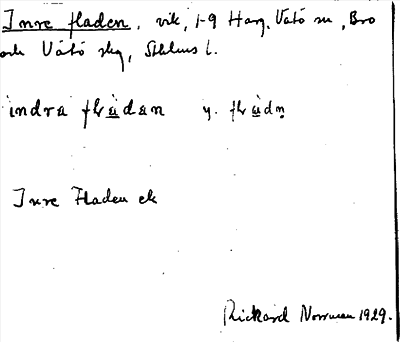 Inre fladen, vik, 1-9 Harg, Vätö sn, Bro
och Vätö skg, Sthlms l.
indra flɑ̀dan y. flɑ̀dn̥
Inre Fladen ek
Rickard Norrman 1929.